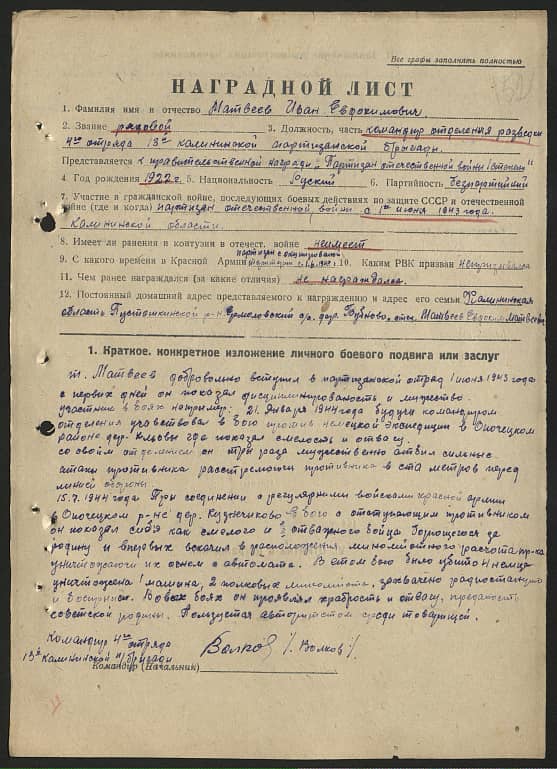 Все графы заполнять полностью
НАГРАДНОЙ ЛИСТ
1. Фамилия имя и отчество Матвеев Иван Евдокимович.
2. Звание рядовой 3. Должность, часть командир отделения разведки
4го отряда 13й калининской партизанской бригады.
Представляется к правительственной награде „Партизан отечественной войны I степени"
4. Год рождения 1922 г. 5. Национальность Руский 6. Партийность Безпартийный
7. Участие в гражданской войне, последующих боевых действиях по защите СССР и отечественной
войне (где и когда) партизан отечественной войны с 1го июня 1943 года.
Калининской области.
8. Имеет ли ранения и контузии в отечест. войне неимеет
9. С какого времени в Красной Армии 10. Каким РВК призван непризывался
11. Чем ранее награждался (за какие отличия) не награждался
12. Постоянный домашний адрес представляемого к награждению и адрес его семьи Калининская
область Пустошкинский р-н Ермоловский с/с. дер. отец Матвеев Евдоким Матвеевич
1. Краткое, конкретное изложение личного боевого подвига или заслуг
т. Матвеев добровольно вступил в партизанский отряд 1 июня 1943 года
с первых дней он показал дисциплинированость и мужество
участвию в боях например: 21. Января 1944 года будучи командиром
отделения учавствовал в бою против немецкой экспедиции в Опочецком
районе дер. где показал смелость и отвагу.
со своим отделением он три раза мужественно отбил сильные
атаки противника расстреливая противника в ста метров перед
линией обороны.
15.7.1944 года При соединении с регулярными войсками красной армии
в Опочецком р-не дер. Кузнечиково в бою с отступающим противником
он показал себя как смелого и отважного бойца. Борющегося за
родину и впервых вскочил в расположения минометного расчота пр-ка
уничтожая их огнем с автомата. В этом бою было убито 4 немца
уничтожена 1 машина, 2 полковых миномёта, захвачено радиостанцию
и В своих боях он проявлял храбрость и отвагу, преданость
советской родины. Пользуется авторитетом среди товарищей.
Командир 4го отряда
13й Калининской п/бригады Волков /. Волков /.
Командир (Начальник)